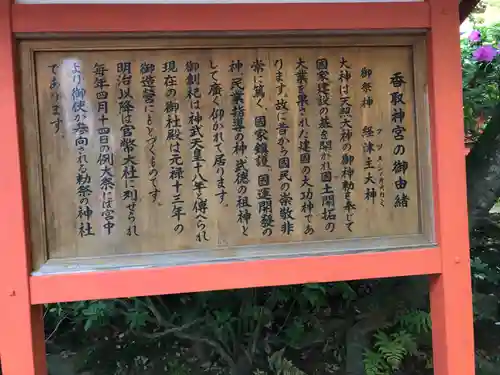 香取神宮の御由緒
御祭神 経津主大神
フツヌシノオホカミ
大神は天照大神の御神勅を奉じて
國家建設の基を開かれ國土開拓の
大業を果された建国の大功神であ
ります。故に昔から國民の崇敬非
常に篤く、國家鎮護、國運開發の
神、民業指導の神、武徳の祖神と
して廣く仰がれて居ります。
御創祀は神武天皇十八年と傳へられ
現在の御社殿は元禄十三年の
御造營にもとづくものです。
明治以降は官幣大社に列せられ
毎年四月十四日の例大祭には宮中
より御使が参向される勅祭の神社
であります。